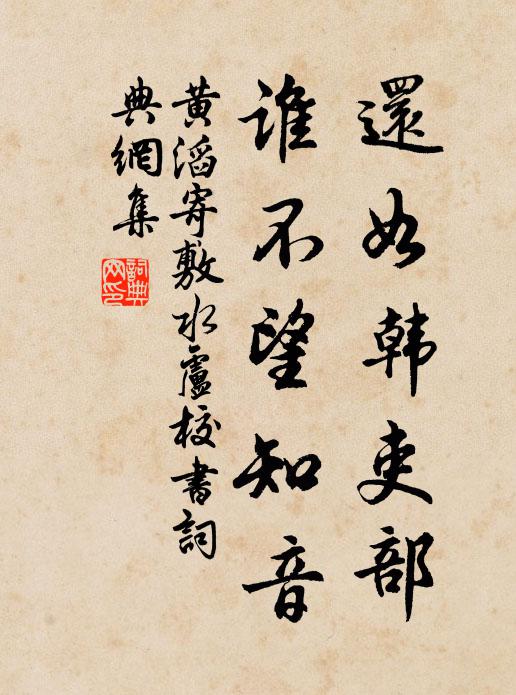 還如韓吏部
誰不望知音
黃滔寄敷水盧校書詞
典網集
詞典網印